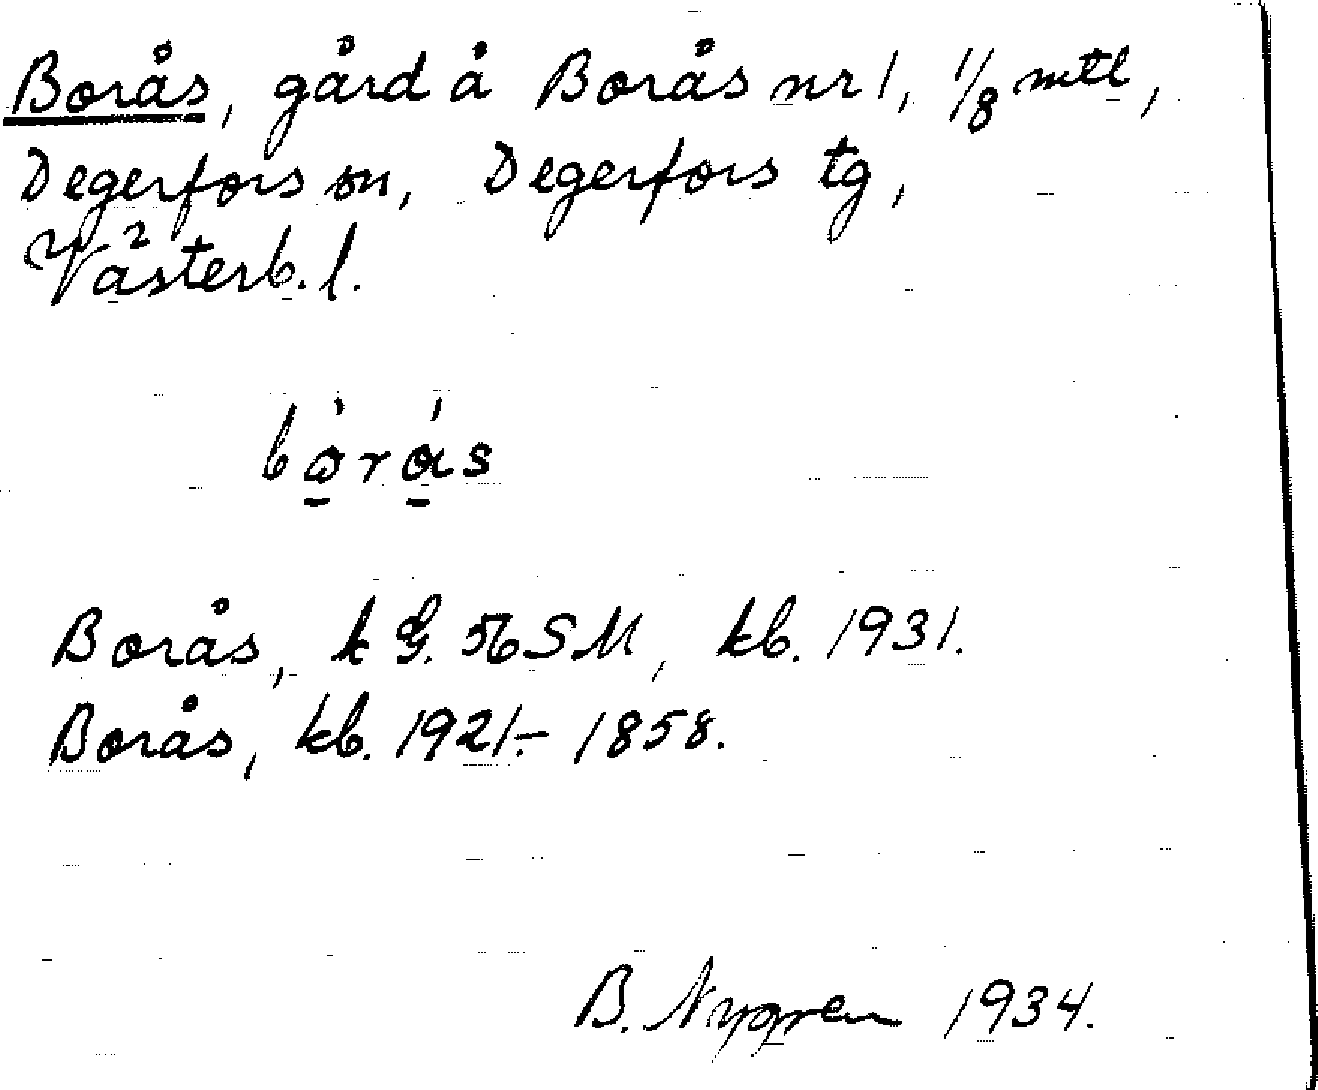 Borås, gård å Borås nr 1, 1/8 mtl,
Degerfors sn, Degerfors tg,
Västerb. l.
bò̱rá̱s
Borås, k G. 56 SM, kb. 1931.
Borås, kb. 1921.- 1858.
B. Nygren 1934.